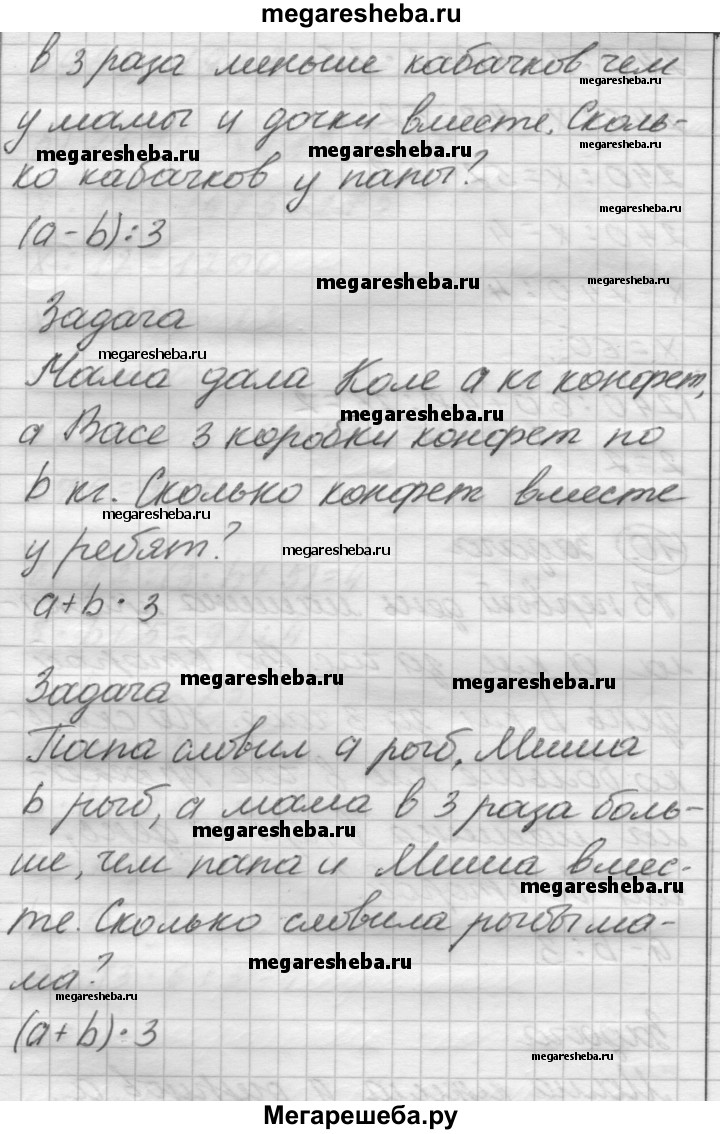 megaresheba.ru
в 3 раза меньше кабачков чем
megaresheba.ru
у мамы и дочки вместе. Сколь-
megaresheba.ru
megaresheba.ru
megaresheba.ru
ко кабачков у папы?
megaresheba.ru
(a - b) : 3
megaresheba.ru
megaresheba.ru
Задача
megaresheba.ru
Мама дала Коле а кг конфет,
megaresheba.ru
а Васе 3 коробки конфет по
b кг. Сколько конфет вместе
megaresheba.ru
у ребят?
megaresheba.ru
a + b · 3
Задача
megaresheba.ru
megaresheba.ru
Папа словил а рыб, Миша
b рыб, а мама в 3 раза боль-
megaresheba.ru
ше, чем папа и Миша вмес-
megaresheba.ru
те. Сколько словила рыбы ма-
megaresheba.ru
ма?
megaresheba.ru
(a + b) · 3
megaresheba.ru
Мегарешеба.ру